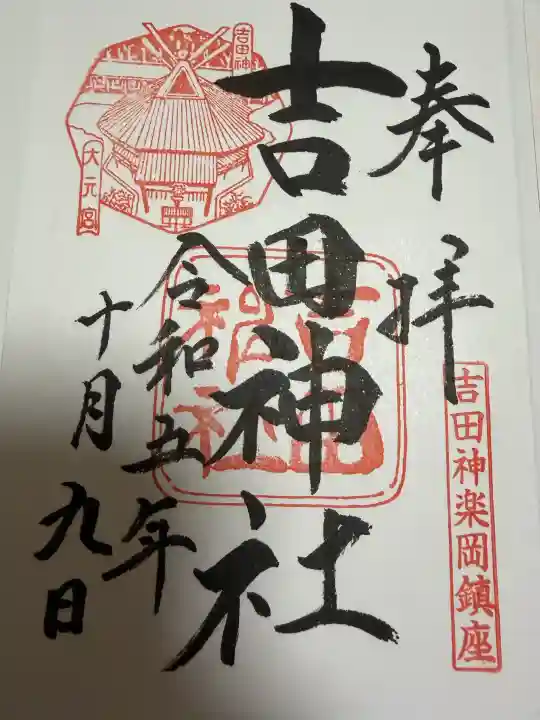 奉拝
吉田神楽岡鎮座
吉田神社
吉田神社
令和五年
十月九日
吉田神
大元宮